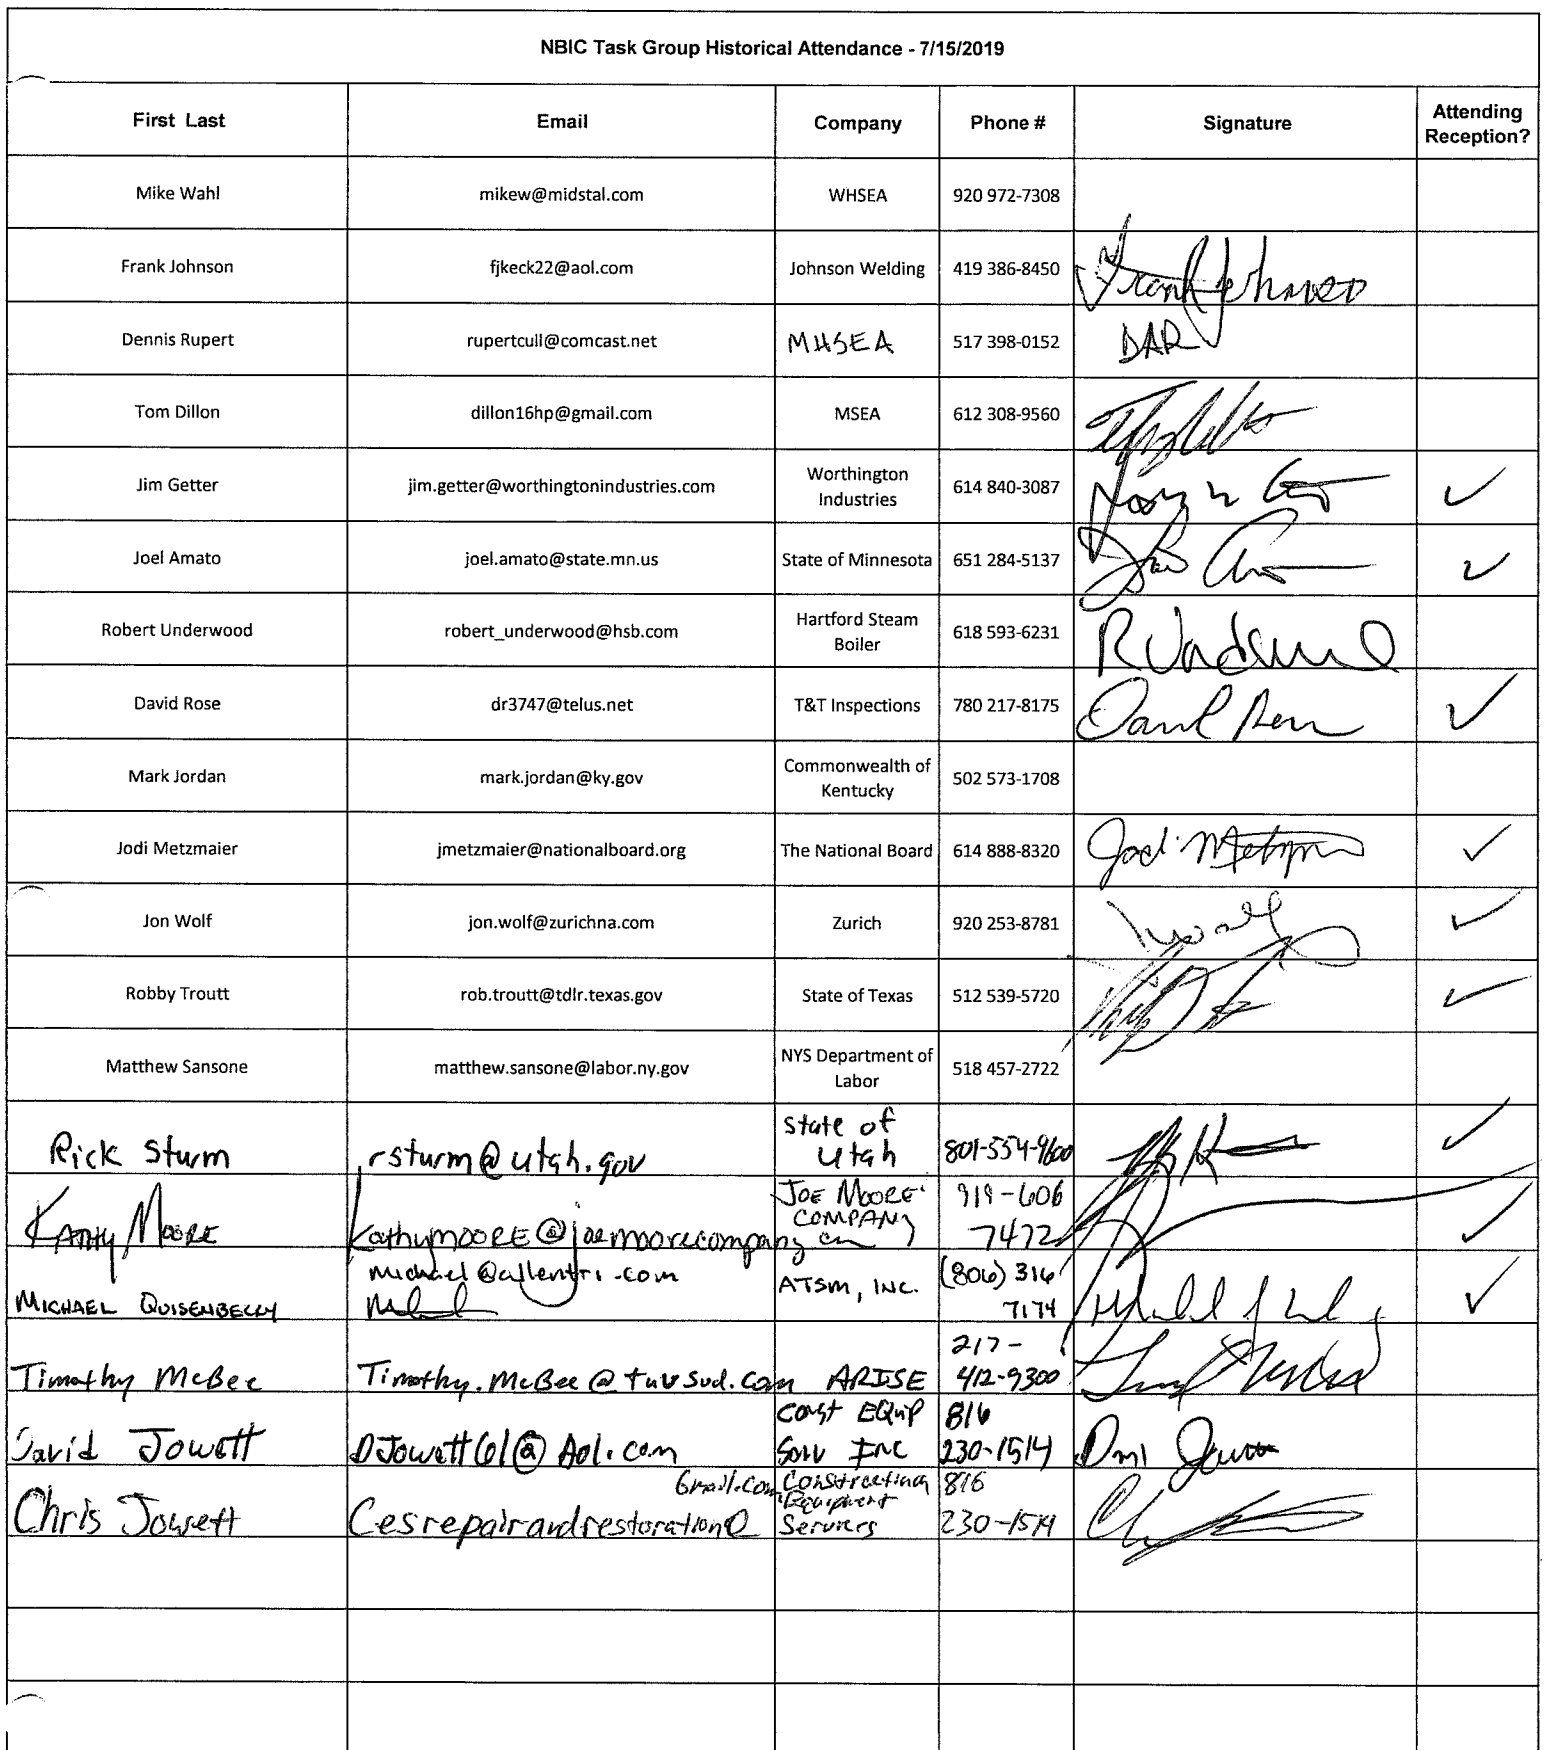 NBIC Task Group Historical Attendance - 7/15/2019
First Last Email Company Phone # Signature Attending Reception?
Mike Wahl mikew@midstal.com WHSEA 920 972-7308
Frank Johnson fjkeck22@aol.com Johnson Welding 419 386-8450 Frank Johnson
Dennis Rupert rupertcull@comcast.net MHSEA 517 398-0152 DAR
Tom Dillon dillon16hp@gmail.com MSEA 612 308-9560
Jim Getter jim.getter@worthingtonindustries.com Worthington Industries 614 840-3087 ✓
Joel Amato joel.amato@state.mn.us State of Minnesota 651 284-5137 ✓
Robert Underwood robert_underwood@hsb.com Hartford Steam Boiler 618 593-6231
David Rose dr3747@telus.net T&T Inspections 780 217-8175 ✓
Mark Jordan mark.jordan@ky.gov Commonwealth of Kentucky 502 573-1708
Jodi Metzmaier jmetzmaier@nationalboard.org The National Board 614 888-8320 ✓
Jon Wolf jon.wolf@zurichna.com Zurich 920 253-8781 ✓
Robby Troutt rob.troutt@tdlr.texas.gov State of Texas 512 539-5720 ✓
Matthew Sansone matthew.sansone@labor.ny.gov NYS Department of Labor 518 457-2722
Rick Sturm rsturm@utah.gov State of Utah 801-554-9600 ✓
Kathy Moore KathymooRE@joemoorecompany.com JOE MOORE COMPANY 919-606 7472 ✓
MICHAEL QUISENBERRY michael@allentri.com ATSM, INC. (806) 316 7174 ✓
Timothy McBee Timothy.McBee@tuvsud.com ARISE 217-412-9300
David Jowett DJowett61@Aol.com Const EQuip Serv INC 816 230-1514
Chris Jowett Cesrepairandrestoration@Gmail.com Construction Equipment Services 816 230-1514